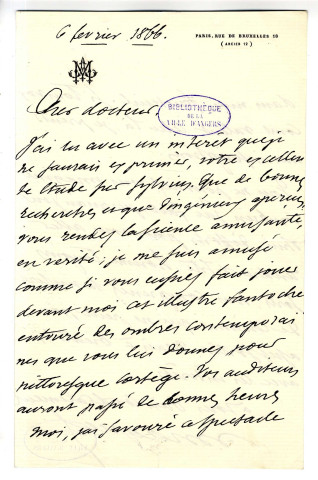 6 fevrier 1866.
PARIS, RUE DE BRUXELLES
Cher docteur,
BIBLIOTHÈQUE
DE LA
VILLE D'ANGERS
J'ai lu avec un intérêt que je
ne saurais exprimer, votre excellen
te Etude sur Sylvius. Que de bonnes
recherches et que d'ingénieux aperçus,
vous rendez la science amusante,
en verité; je me suis amusé
comme si vous eussiez fait jouer
devant moi cet illustre fantoche
entouré des ombres contemporai
nes que vous lui donnez pour
pittoresque cortège. Vos auditeurs
auront passé de bonnes heures
moi, j'ai savouré ce spectacle